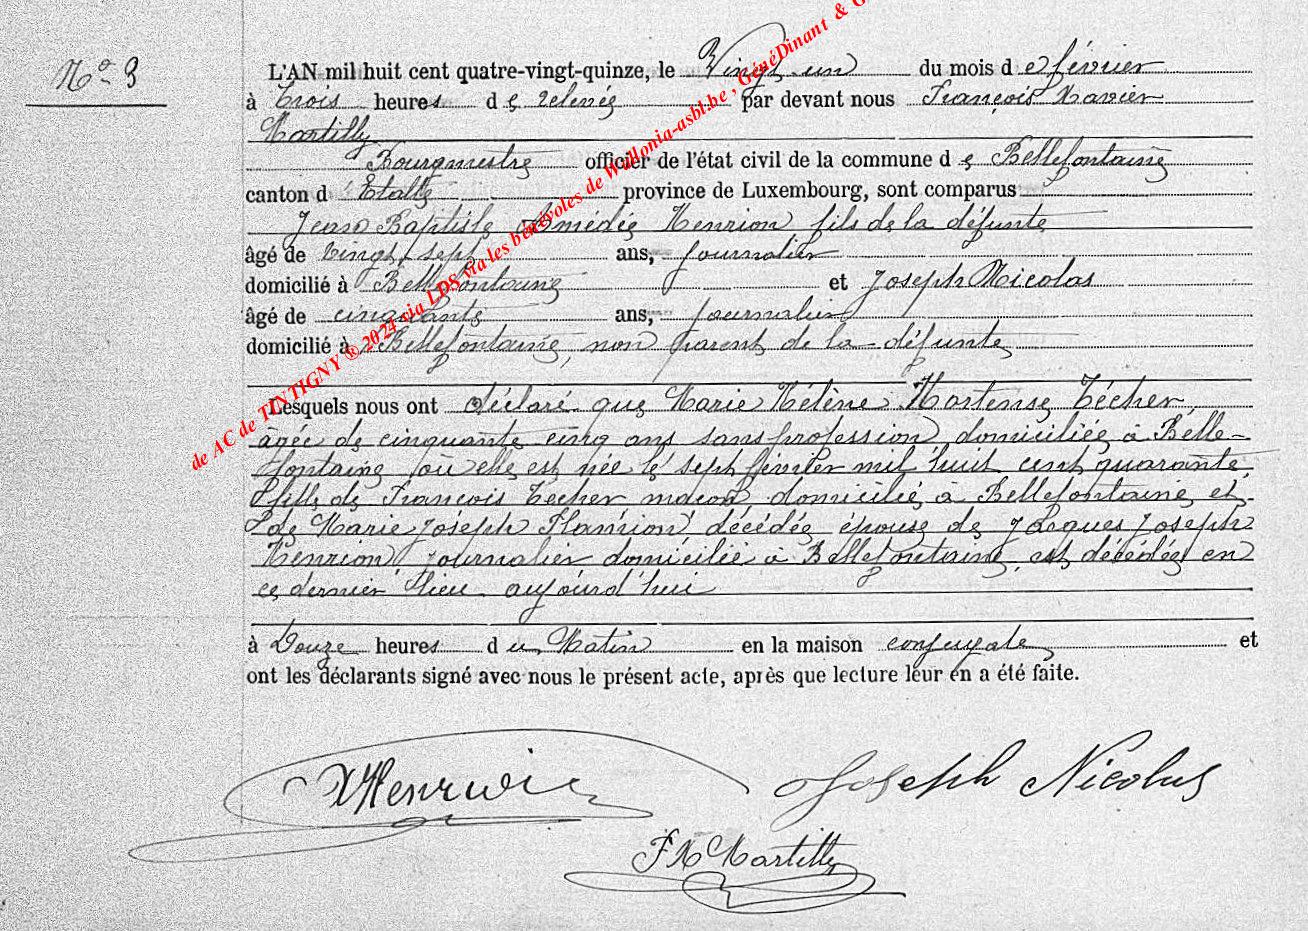 N° 3
L'AN mil huit cent quatre-vingt-quinze, le Vingt un du mois de février
à trois heures de relevée par devant nous François Xavier
Martilly
Bourgmestre officier de l'état civil de la commune de Bellefontaine
canton d'Etalle province de Luxembourg, sont comparus
Jean Baptiste Amédée Henrion, fils de la défunte
âgé de vingt sept ans, journalier
domicilié à Bellefontaine et Joseph Nicolas
âgé de cinquante ans, journalier
domicilié à Bellefontaine, non parent de la défunte
Lesquels nous ont déclaré que Marie Hélène Hortense Técher,
âgée de cinquante cinq ans sans profession, domiciliée à Belle-
fontaine, où elle est née le sept février mil huit cent quarante,
fille de François Técher maçon, domicilié à Bellefontaine et
de Marie Joseph décédée, épouse de Jacques Joseph
Henrion, journalier domicilié à Bellefontaine, est décédée en
ce dernier lieu aujourd'hui
à Douze heures du Matin en la maison conjugale et
ont les déclarants signé avec nous le présent acte, après que lecture leur en a été faite.
Henrion Joseph Nicolas
F X Martilly
de AC de TINTIGNY ® 2024 via LDS via les bénévoles de Wallonia-asbl.be , GénéDinant & G